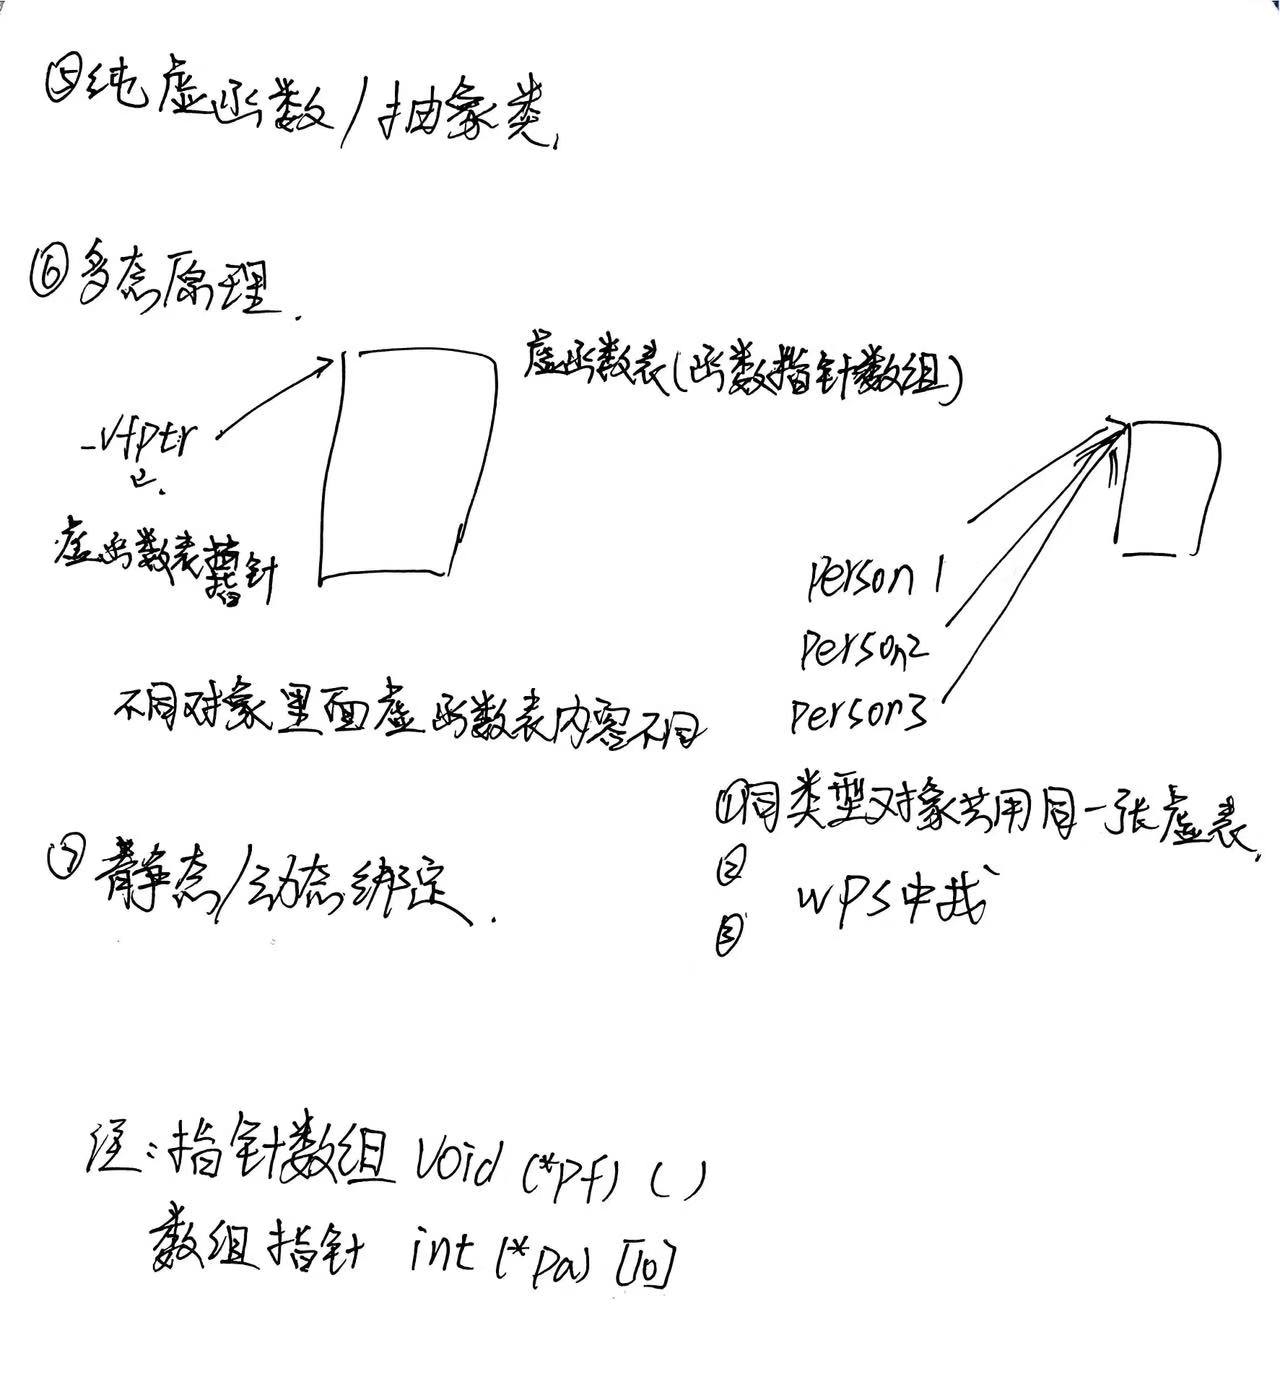 ⑤纯虚函数/抽象类.
⑥多态原理.
虚函数表(函数指针数组)
_vfptr
虚函数表指针
person 1
person2
person3
不同对象里面虚函数表内容不同
①同类型对象共用同一张虚表.
②
③
wps中找
⑦静态/动态绑定.
注:指针数组 void (*pf) ( )
数组指针 int (*pa) [10]